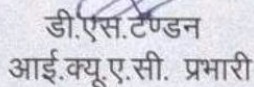 डी.एस.टण्डन
आई.क्यू.ए.सी. प्रभारी